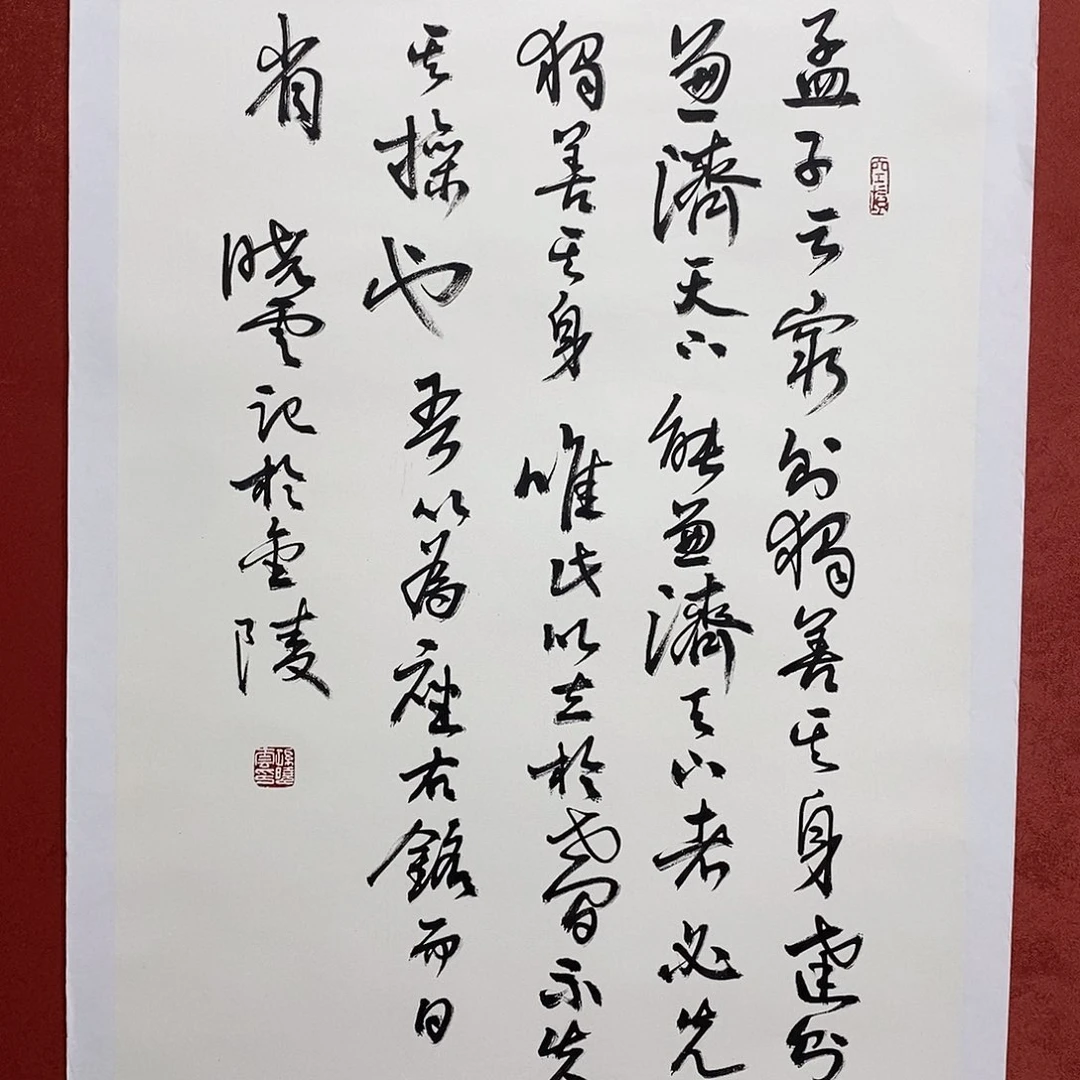 孟子云窮則獨善其身達則
兼濟天下能兼濟天下者必先
獨善其身唯此以立於世間不失
其操也吾以為座右銘而日
省 曉雲記於金陵